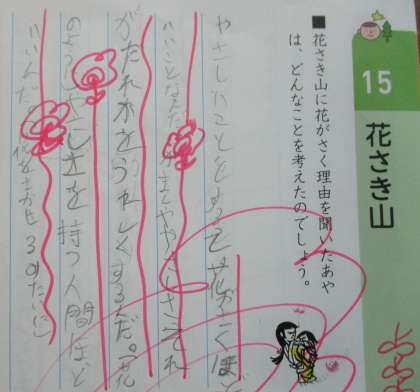 15
花さき山
花さき山に花がさく理由を聞いたあや
は、どんなことを考えたのでしょう。
やさしいことをすると花がさくほど
いいことなんだ
やさしさで
がだれかをうれしくするんだ。花
のようにやさしさを持つ人間ほど
いいんだ